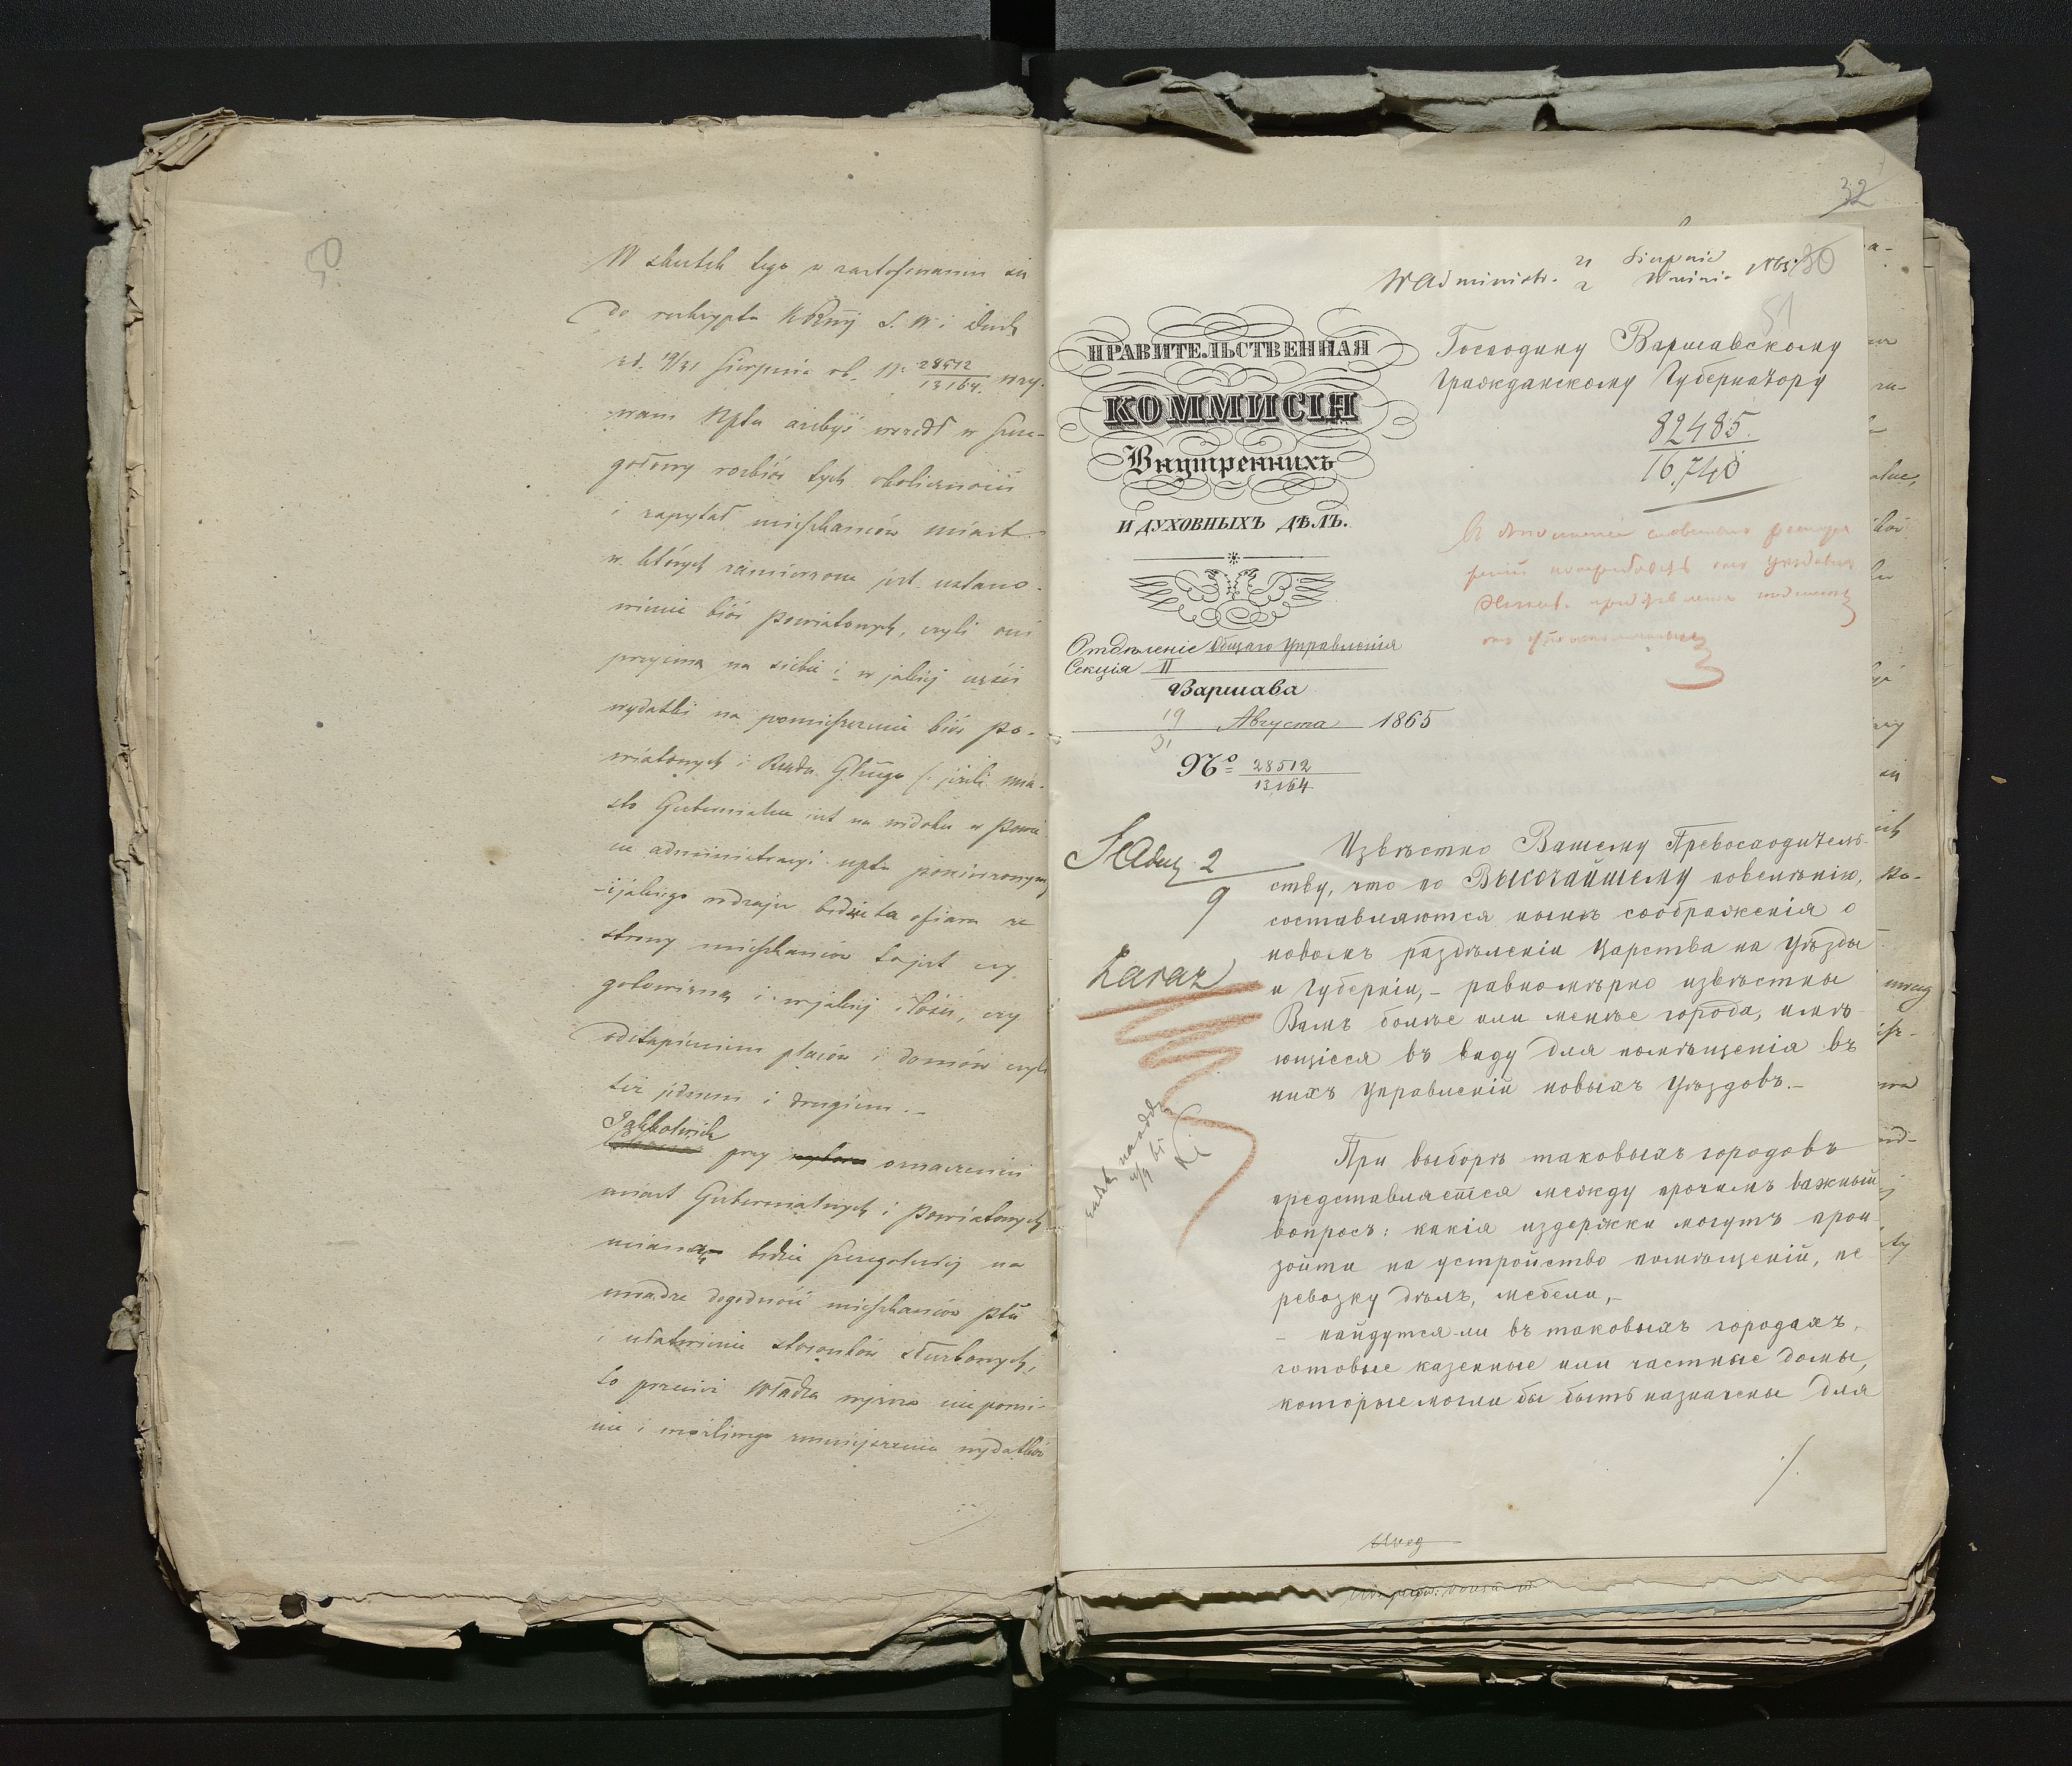 50
W skutek tego w zastosowaniu się
do reskryptu KRznej S. W. i Duch.
z d. 19/31 Sierpnia rb. Nr 28512/13164. wzy-
wam Npła ażebyś wszedł w szcze-
gółowy rozbiór tych okoliczności
i zapytał mieszkańców miast
w których zamierzone jest ustano-
wienie biór powiatowych, czyli oni
przyjmą na siebie i w jakiej części
wydatki na pomieszczenie biór po-
wiatowych i Rządu Głnego /: jeżeli mia-
sto Gubernialne jest na widoku w Powie-
cie administracyi npła powierzonym
i jakiego rodzaju będzie ta ofiara ze
strony mieszkańców to jest czy
gotowizną i w jakiej ilości, czy
odstąpieniem placów i domów czyli
też jednem i drugiem. –
Jakkolwiek
przy oznaczeniu
miast Gubernialnych i powiatowych
mianą będzie szczególniej na
uwadze dogodność mieszkańców ptu
i ułatwienie stosunków służbowych,
to przecież Władza wyższa nie pomi-
nie i możliwego zmniejszenia wydatków
32
W Administr. 21 Sierpnia
2 Września 50
51
ПРАВИТЕЛЬСТВЕННАЯ
КОММИСІЯ
Внутреннихъ
И ДУХОВНЫХЪ ДѢЛЪ.
Отдѣленіе Общаго Управленія
Секція II
Варшава
19/31 Августа 1865
№ 28512/13164
Господину Варшавскому
Гражданскому Губернатору
82485.
16,740
2
9
Zaraz
Извѣстно Вашему Превосходитель-
ству, что по Высочайшему повелѣнію,
составляются нынѣ соображенія о
новомъ раздѣленіи Царства на Уѣзды
и Губерніи, – равномѣрно извѣстны
Вамъ болѣе или менѣе города, имѣ-
ющіеся въ виду для помѣщенія въ
нихъ Управленій новыхъ Уѣздовъ. –
При выборѣ таковыхъ городовъ
представляется между прочимъ важный
вопросъ: какія издержки могутъ прои
зойти на устройство помѣщеній, пе
ревозку дѣлъ, мебели, –
– найдутся-ли въ таковыхъ городахъ,
готовые казенные или частные домы,
которые могли бы быть назначены для
./.